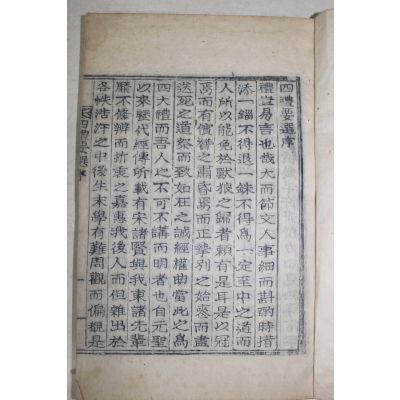 四禮要選序
禮豈易言也哉大而節文人事細而斟酌時措
添一錙不得退一銖不得爲一定至中之道而
人所以能免於獸狼之歸者賴有是耳是以冠
焉而有儐贊之肅昏焉而正摯別之始喪而盡
送死之道祭而致如在之誠經權曲當此之爲
四大禮而吾人之不可不講而明者也自元聖
以來歷代經傳所載有宋諸賢與我東諸先輩
靡不修辨而折衷之嘉惠我後人而但雜出於
各帙浩汗之中後生末學有難周觀而偏覩是
四禮要選序
一